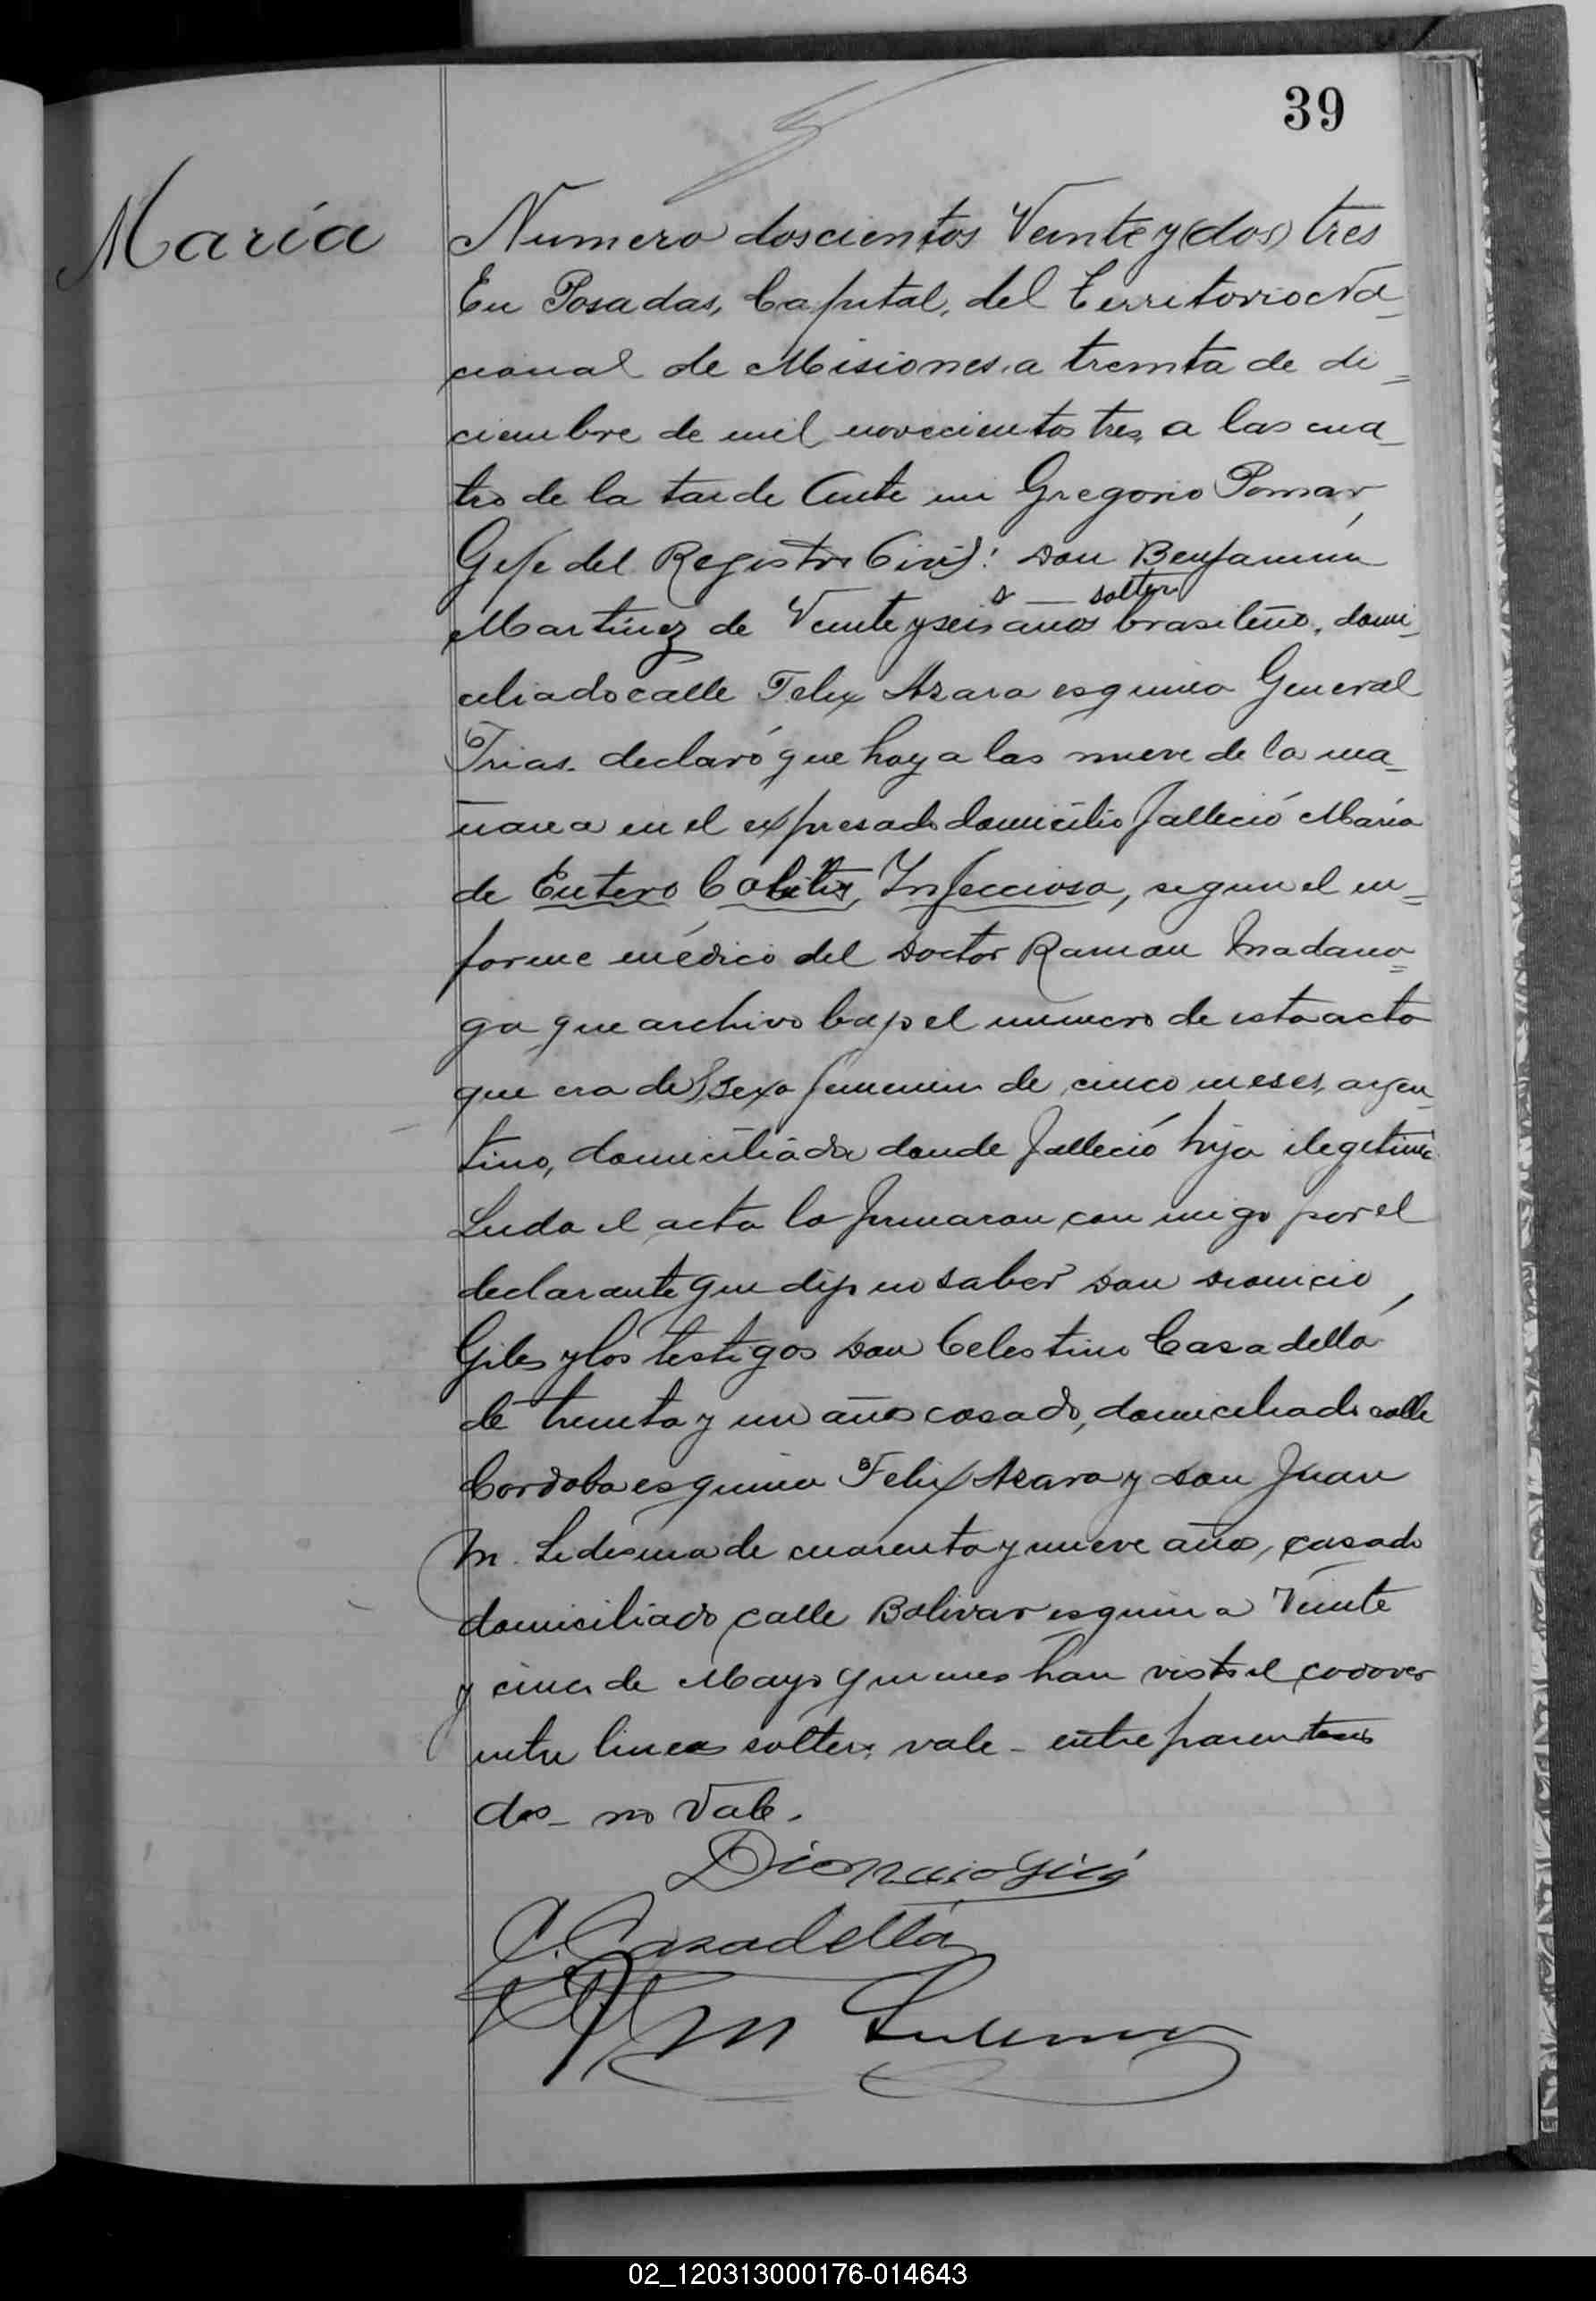 39
María
Numero doscientos Veinte y (dos) tres
En Posadas, Capital, del Territorio Na_
cional de Misiones, a treinta de di=
ciembre de mil novecientos tres, a las cua_
tro de la tarde Ante mi Gregorio Pomar,
Gefe del Registro Civil: Don Benjamín
soltero
Martinez de Veinte y seis años brasileño, domi_
ciliado calle Felix Azara esquina General
Frias. declaró que hoy a las nueve de la ma_
ñana en el expresado domicilio falleció María
de Entero Colitis, Infecciosa, segun el in=
forme médico del Doctor Ramon Madaria=
ga que archivo bajo el numero de esta acta
que era del sexo femenino de cinco meses, argen_
tino, domiciliada donde falleció hija ilegitima
Leida el acta la firmaron con migo por el
declarante que dijo no saber Don Dionicio
Giles y los testigos Don Celestino Casadellá
de treinta y un años casado, domiciliado calle
Cordoba esquina Felix Azara y Don Juan
M. Ledesma de cuarenta y nueve años, casado
domiciliado calle Bolivar esquina Veinte
y cinco de Mayo quienes han visto el cadaver
entre lineas soltero: vale - entre parentesis
dos - no Vale.
Dionicio
C. Casadellá
M Ledesma
02_120313000176-014643